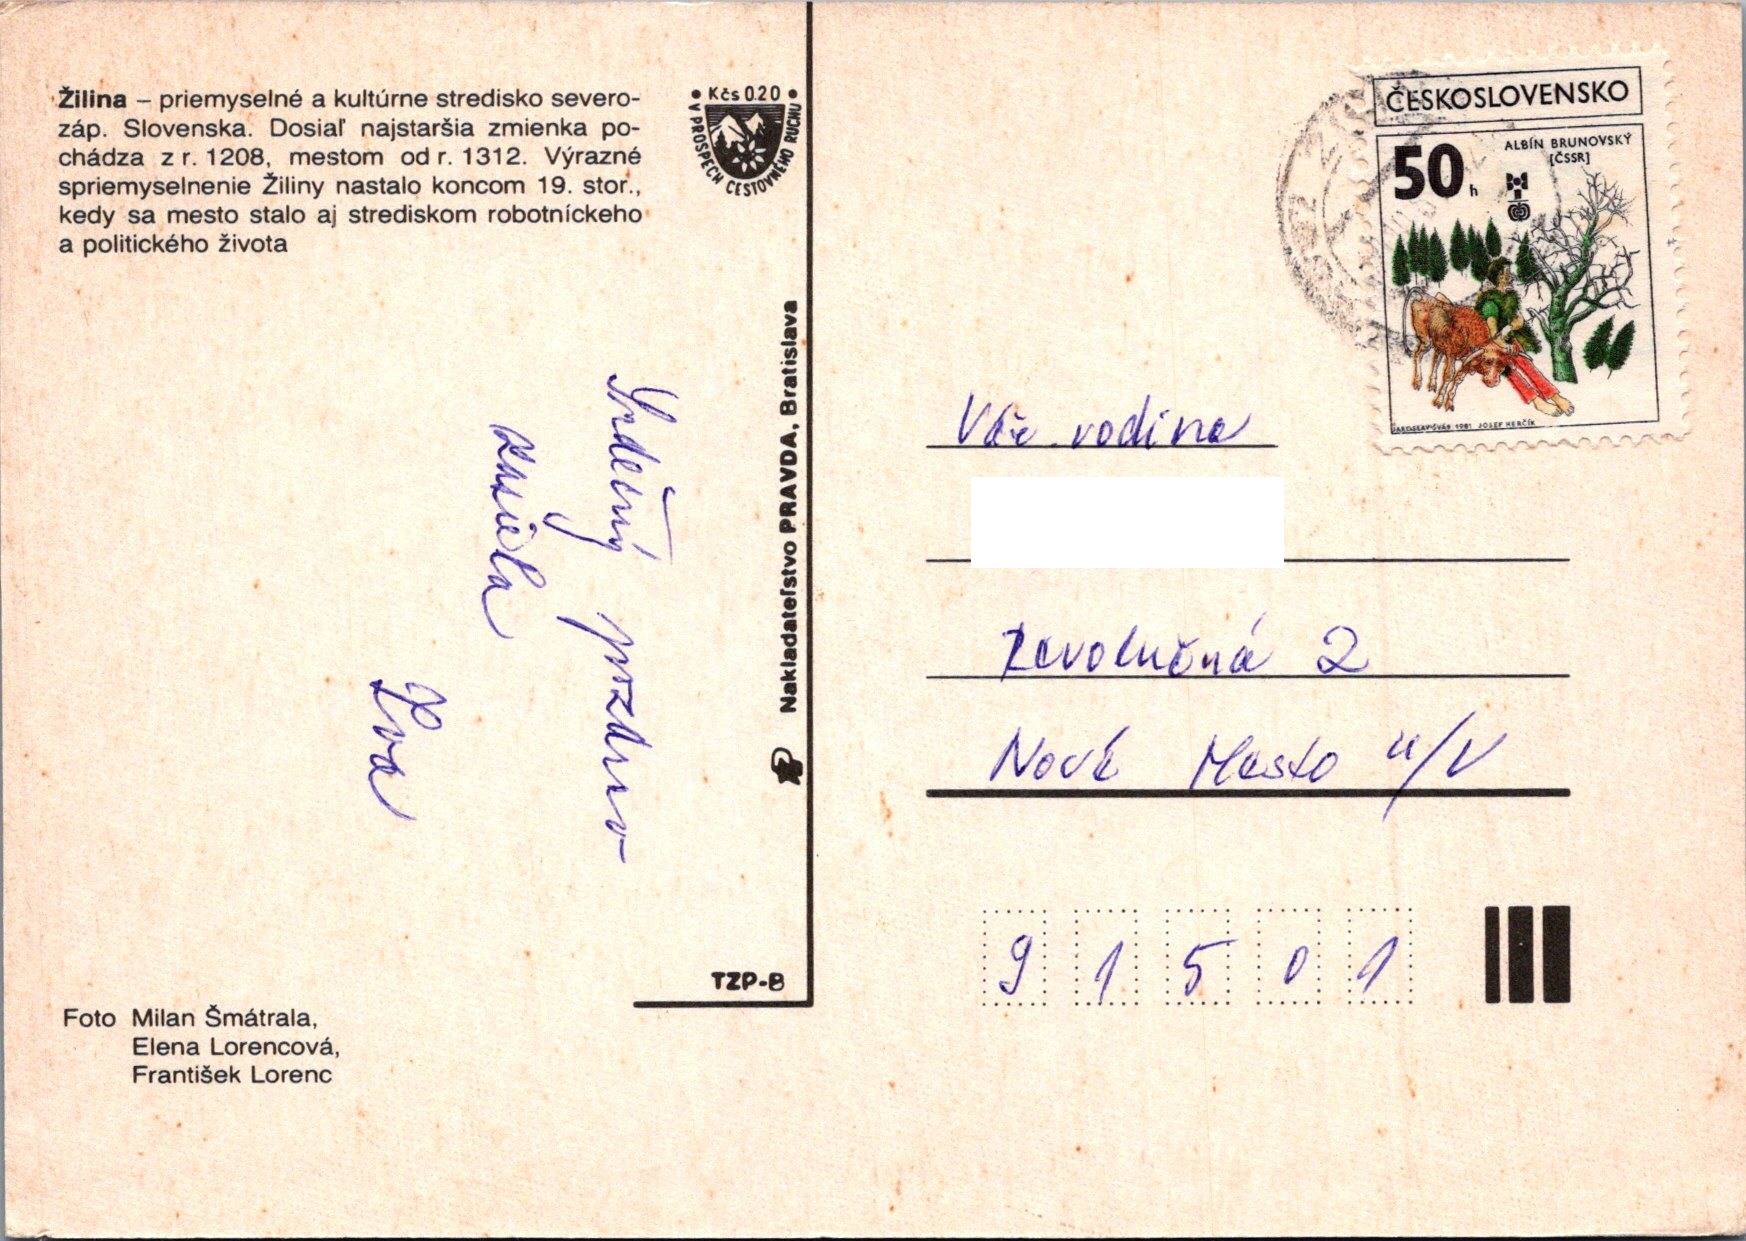 Žilina – priemyselné a kultúrne stredisko severo-
záp. Slovenska. Dosiaľ najstaršia zmienka po-
chádza z r. 1208, mestom od r. 1312. Výrazné
spriemyselnenie Žiliny nastalo koncom 19. stor.,
kedy sa mesto stalo aj strediskom robotníckeho
a politického života
• Kčs 0.20 •
V PROSPECH CESTOVNÉHO RUCHU
Srdečný pozdrav
zasiela
Eva
Nakladateľstvo PRAVDA, Bratislava
TZP-B
Foto Milan Šmátrala,
Elena Lorencová,
František Lorenc
ČESKOSLOVENSKO
ALBÍN BRUNOVSKÝ
[ČSSR]
50 h
JAROSLAV ŠVÁB 1981 JOSEF HERČÍK
Váž. rodina
Revolučná 2
Nové Mesto n/V
91501